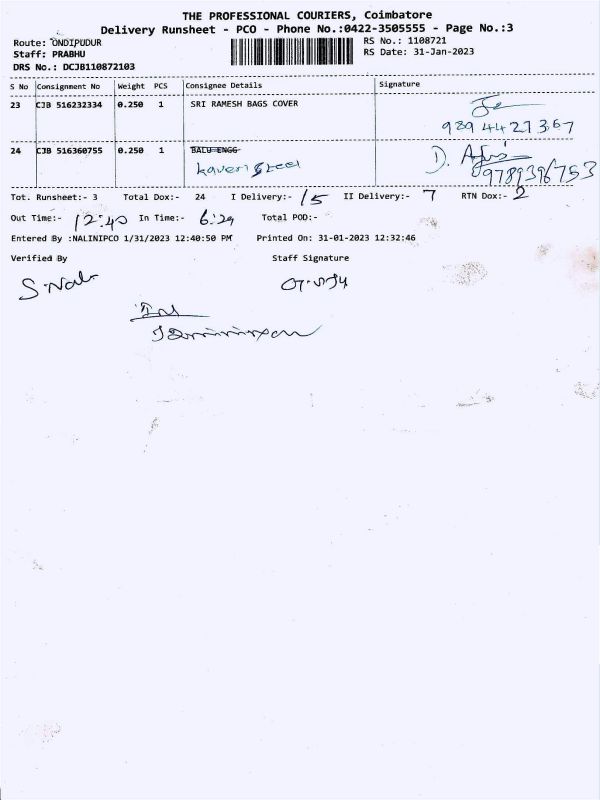 THE PROFESSIONAL COURIERS, Coimbatore
Delivery Runsheet - PCO - Phone No.:0422-3505555 - Page No.:3
Route: ONDIPUDUR RS No.: 1108721
Staff: PRABHU RS Date: 31-Jan-2023
DRS No.: DCJB110872103
S No Consignment No Weight PCS Consignee Details Signature
23 CJB 516232334 0.250 1 SRI RAMESH BAGS COVER
989 4427367
24 CJB 516360755 0.250 1 BALU ENGG
kaveri steel 9789396753
Tot. Runsheet:- 3 Total Dox:- 24 I Delivery:- 15 II Delivery:- 7 RTN Dox:- 2
Out Time:- 12:40 In Time:- 6:29 Total POD:-
Entered By :NALINIPCO 1/31/2023 12:40:50 PM Printed On: 31-01-2023 12:32:46
Verified By Staff Signature